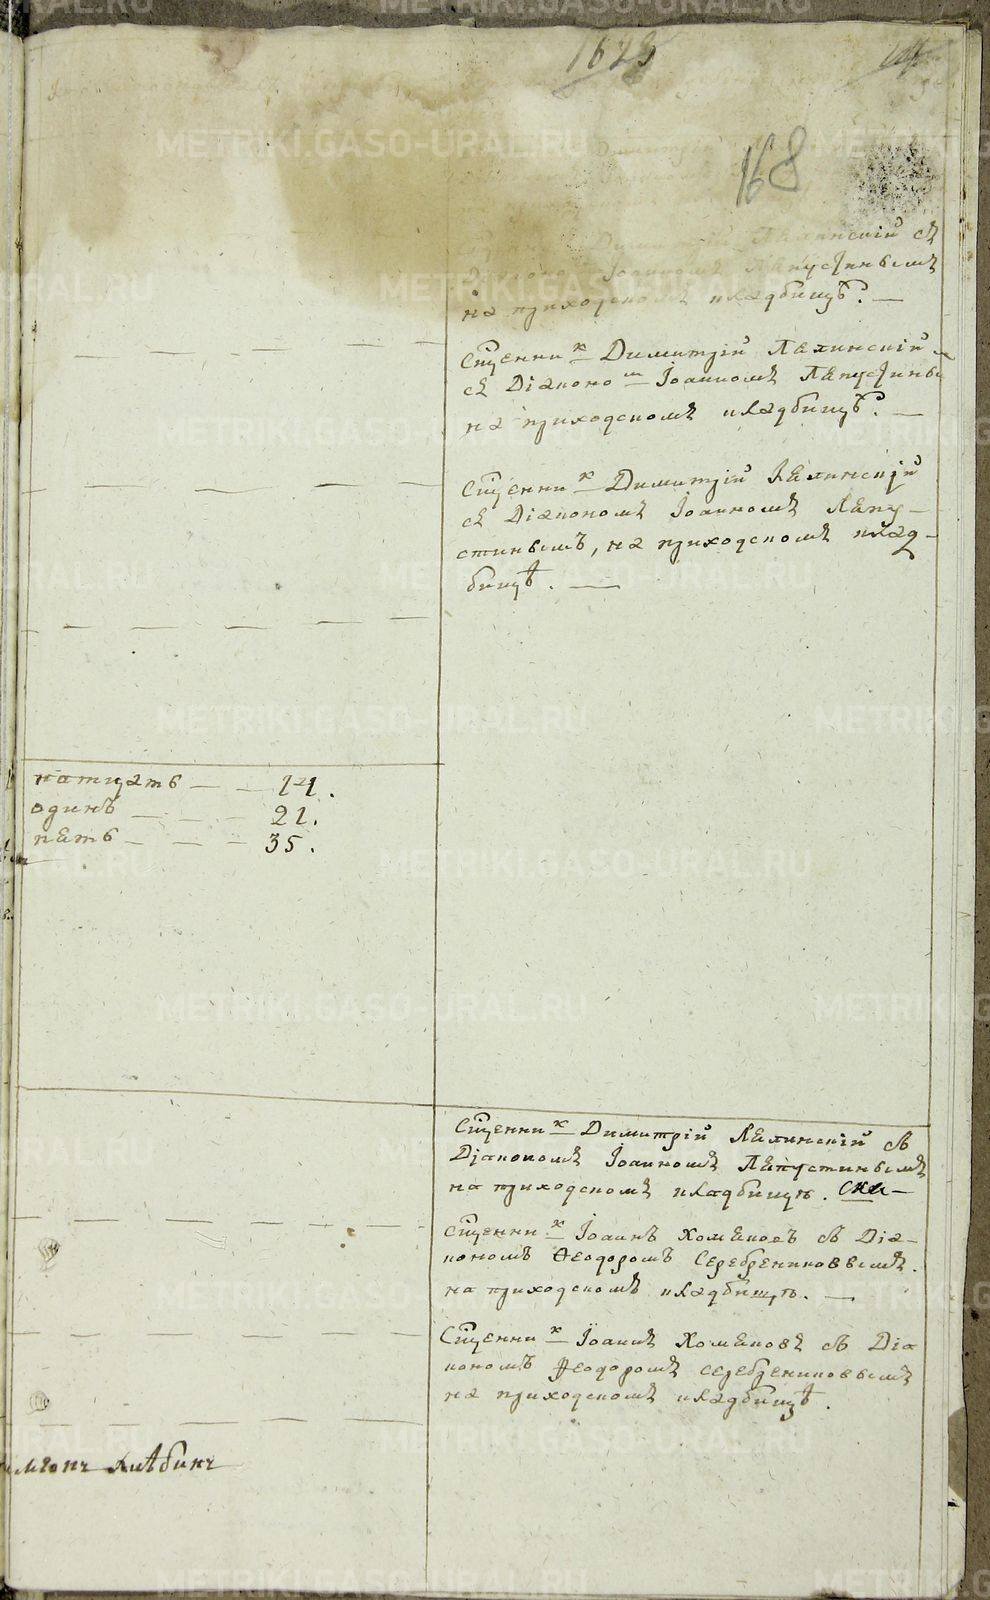 1623
168
Димитрій Ляпинскій съ
Іоанномъ Ляпустинымъ
на приходскомъ кладбищѣ. —
Сщенникъ Димитрій Ляпинскій
съ Діакономъ Іоанномъ Ляпустинымъ
на приходскомъ кладбищѣ. —
Сщенникъ Димитрій Ляпинскій
съ Діакономъ Іоанномъ Ляпу-
стинымъ, на приходскомъ клад-
бищѣ. —
натцать — — 14.
одинъ — — — 21.
пять — — — 35.
Сщенникъ Димитрій Ляпинскій съ
Діакономъ Іоанномъ Ляпустинымъ
на приходскомъ кладбищѣ.
Сщенникъ Іоаннъ Хомяковъ съ Діа-
кономъ Ѳеодоромъ Серебрениковымъ.
на приходскомъ кладбищѣ. —
Сщенникъ Іоаннъ Хомяковъ съ Діа
кономъ Ѳеодоромъ Серебрениковымъ
на приходскомъ кладбищѣ.
Хлѣбинъ
METRIKI.GASO-URAL.RU